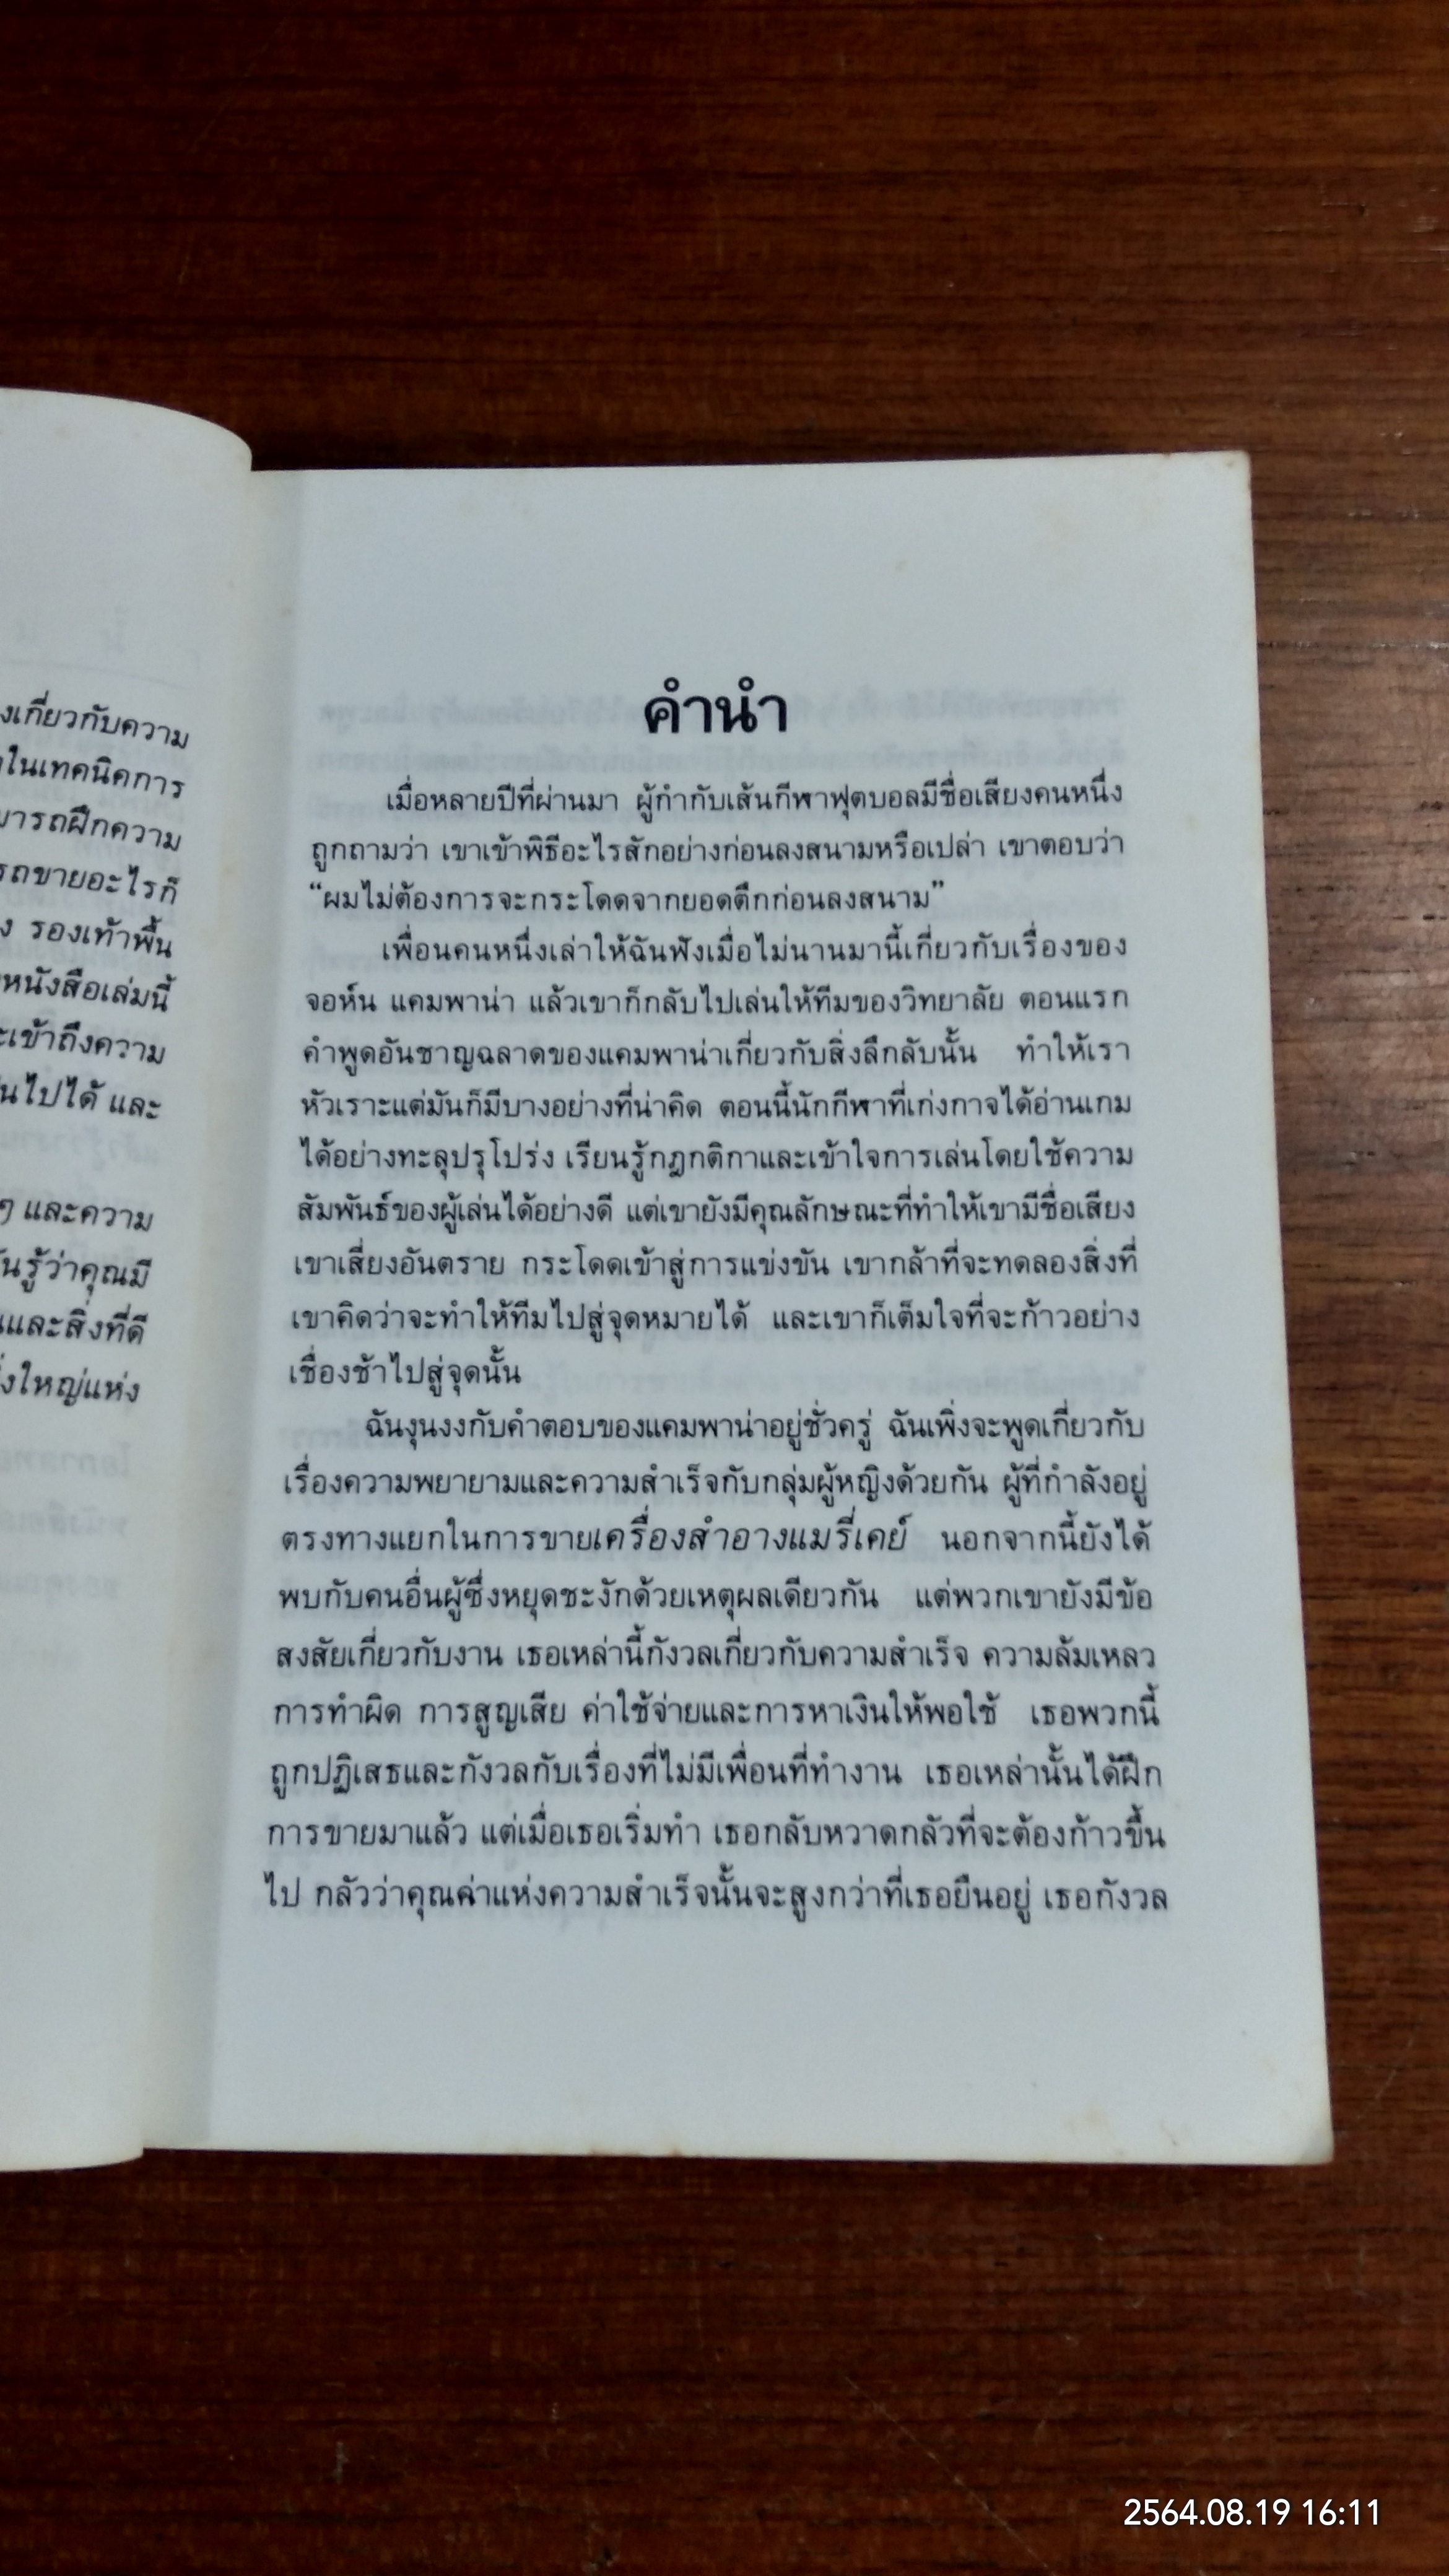 งเกี่ยวกับความ
ในเทคนิคการ
มารถฝึกความ
รถขายอะไรก็
ง รองเท้าพื้น
หนังสือเล่มนี้
ะเข้าถึงความ
นไปได้ และ
ๆ และความ
ันรู้ว่าคุณมี
และสิ่งที่ดี
ใหญ่แห่ง
คำนำ
เมื่อหลายปีที่ผ่านมา ผู้กำกับเส้นกีฬาฟุตบอลมีชื่อเสียงคนหนึ่ง
ถูกถามว่า เขาเข้าพิธีอะไรสักอย่างก่อนลงสนามหรือเปล่า เขาตอบว่า
“ผมไม่ต้องการจะกระโดดจากยอดตึกก่อนลงสนาม”
เพื่อนคนหนึ่งเล่าให้ฉันฟังเมื่อไม่นานมานี้เกี่ยวกับเรื่องของ
จอห์น แคมพาน่า แล้วเขาก็กลับไปเล่นให้ทีมของวิทยาลัย ตอนแรก
คำพูดอันชาญฉลาดของแคมพาน่าเกี่ยวกับสิ่งลึกลับนั้น ทำให้เรา
หัวเราะแต่มันก็มีบางอย่างที่น่าคิด ตอนนี้นักกีฬาที่เก่งกาจได้อ่านเกม
ได้อย่างทะลุปรุโปร่ง เรียนรู้กฎกติกาและเข้าใจการเล่นโดยใช้ความ
สัมพันธ์ของผู้เล่นได้อย่างดี แต่เขายังมีคุณลักษณะที่ทำให้เขามีชื่อเสียง
เขาเสี่ยงอันตราย กระโดดเข้าสู่การแข่งขัน เขากล้าที่จะทดลองสิ่งที่
เขาคิดว่าจะทำให้ทีมไปสู่จุดหมายได้ และเขาก็เต็มใจที่จะก้าวอย่าง
เชื่องช้าไปสู่จุดนั้น
ฉันงุนงงกับคำตอบของแคมพาน่าอยู่ชั่วครู่ ฉันเพิ่งจะพูดเกี่ยวกับ
เรื่องความพยายามและความสำเร็จกับกลุ่มผู้หญิงด้วยกัน ผู้ที่กำลังอยู่
ตรงทางแยกในการขายเครื่องสำอางแมรี่เคย์ นอกจากนี้ยังได้
พบกับคนอื่นผู้ซึ่งหยุดชะงักด้วยเหตุผลเดียวกัน แต่พวกเขายังมีข้อ
สงสัยเกี่ยวกับงาน เธอเหล่านี้กังวลเกี่ยวกับความสำเร็จ ความล้มเหลว
การทำผิด การสูญเสีย ค่าใช้จ่ายและการหาเงินให้พอใช้ เธอพวกนี้
ถูกปฏิเสธและกังวลกับเรื่องที่ไม่มีเพื่อนที่ทำงาน เธอเหล่านั้นได้ฝึก
การขายมาแล้ว แต่เมื่อเธอเริ่มทำ เธอกลับหวาดกลัวที่จะต้องก้าวขึ้น
ไป กลัวว่าคุณค่าแห่งความสำเร็จนั้นจะสูงกว่าที่เธอยืนอยู่ เธอกังวล
2564.08.19 16:11